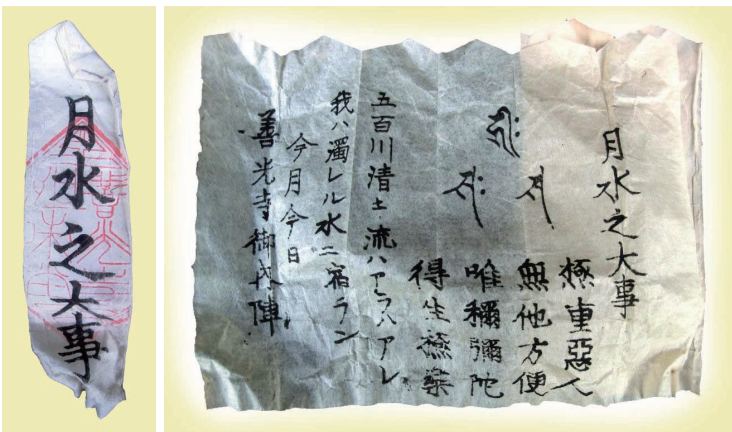 月水之大事
月水之大事
極重惡人
無他方便
唯稱彌陀
得生極樂
五百川清キ流ハアラハアレ
我ハ濁レル水ニ宿ラン
今月今日
善光寺御内陣